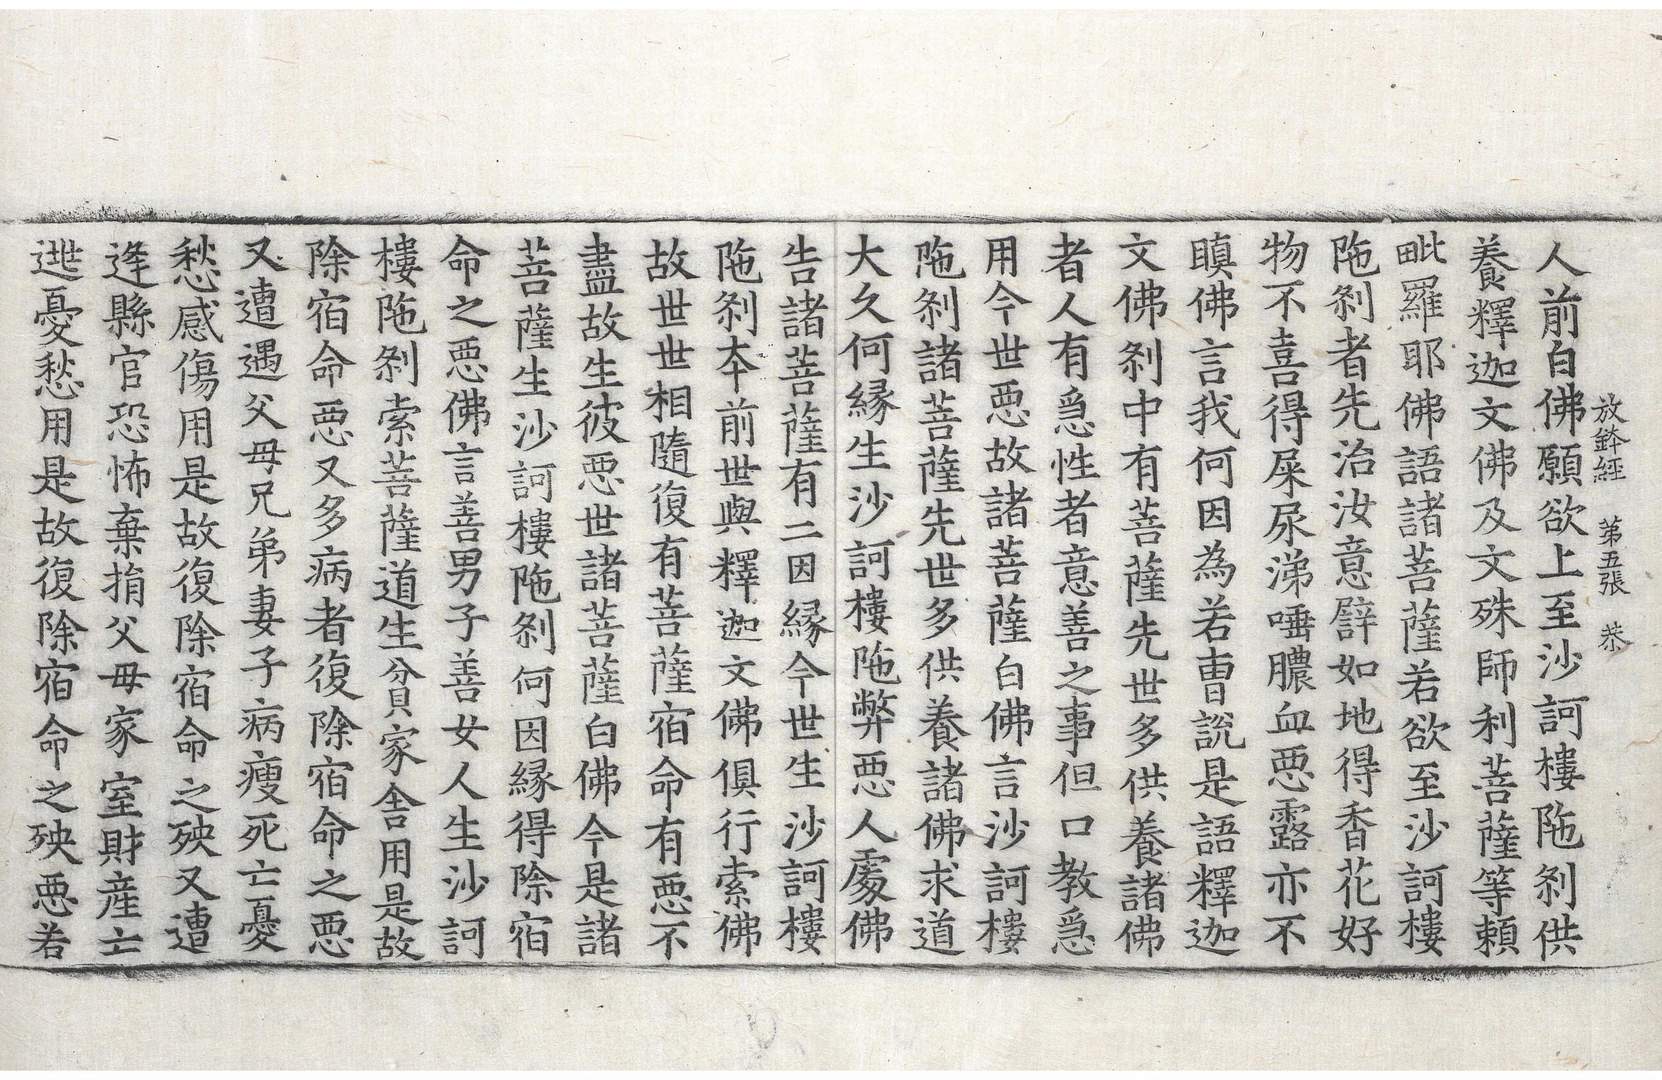 放鉢經 第五張 恭
人前白佛願欲上至沙訶樓陁剎供
養釋迦文佛及文殊師利菩薩等頼
毗羅耶佛語諸菩薩若欲至沙訶樓
陁剎者先治汝意譬如地得香花好
物不喜得屎尿涕唾膿血悪露亦不
瞋佛言我何因為若曺說是語釋迦
文佛剎中有菩薩先世多供養諸佛
者人有急性者意善之事但口教急
用今世悪故諸菩薩白佛言沙訶樓
陁剎諸菩薩先世多供養諸佛求道
大久何縁生沙訶樓陁弊悪人處佛
告諸菩薩有二因縁今世生沙訶樓
陁剎夲前世與釋迦文佛俱行索佛
故世世相隨復有菩薩宿命有悪不
盡故生彼悪世諸菩薩白佛今是諸
菩薩生沙訶樓陁剎何因縁得除宿
命之悪佛言善男子善女人生沙訶
樓陁剎索菩薩道生貧家舎用是故
除宿命悪又多病者復除宿命之悪
又遭遇父母兄弟妻子病瘦死亡憂
愁感傷用是故復除宿命之殃又遭
逢縣官恐怖棄捐父母家室財産亡
逃憂愁用是故復除宿命之殃悪若